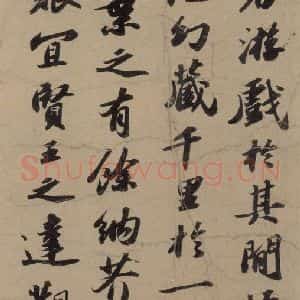 游戲於其間
幻藏千里於一
業之有餘納芥
宜賢王之達觀
Shufawang.CN